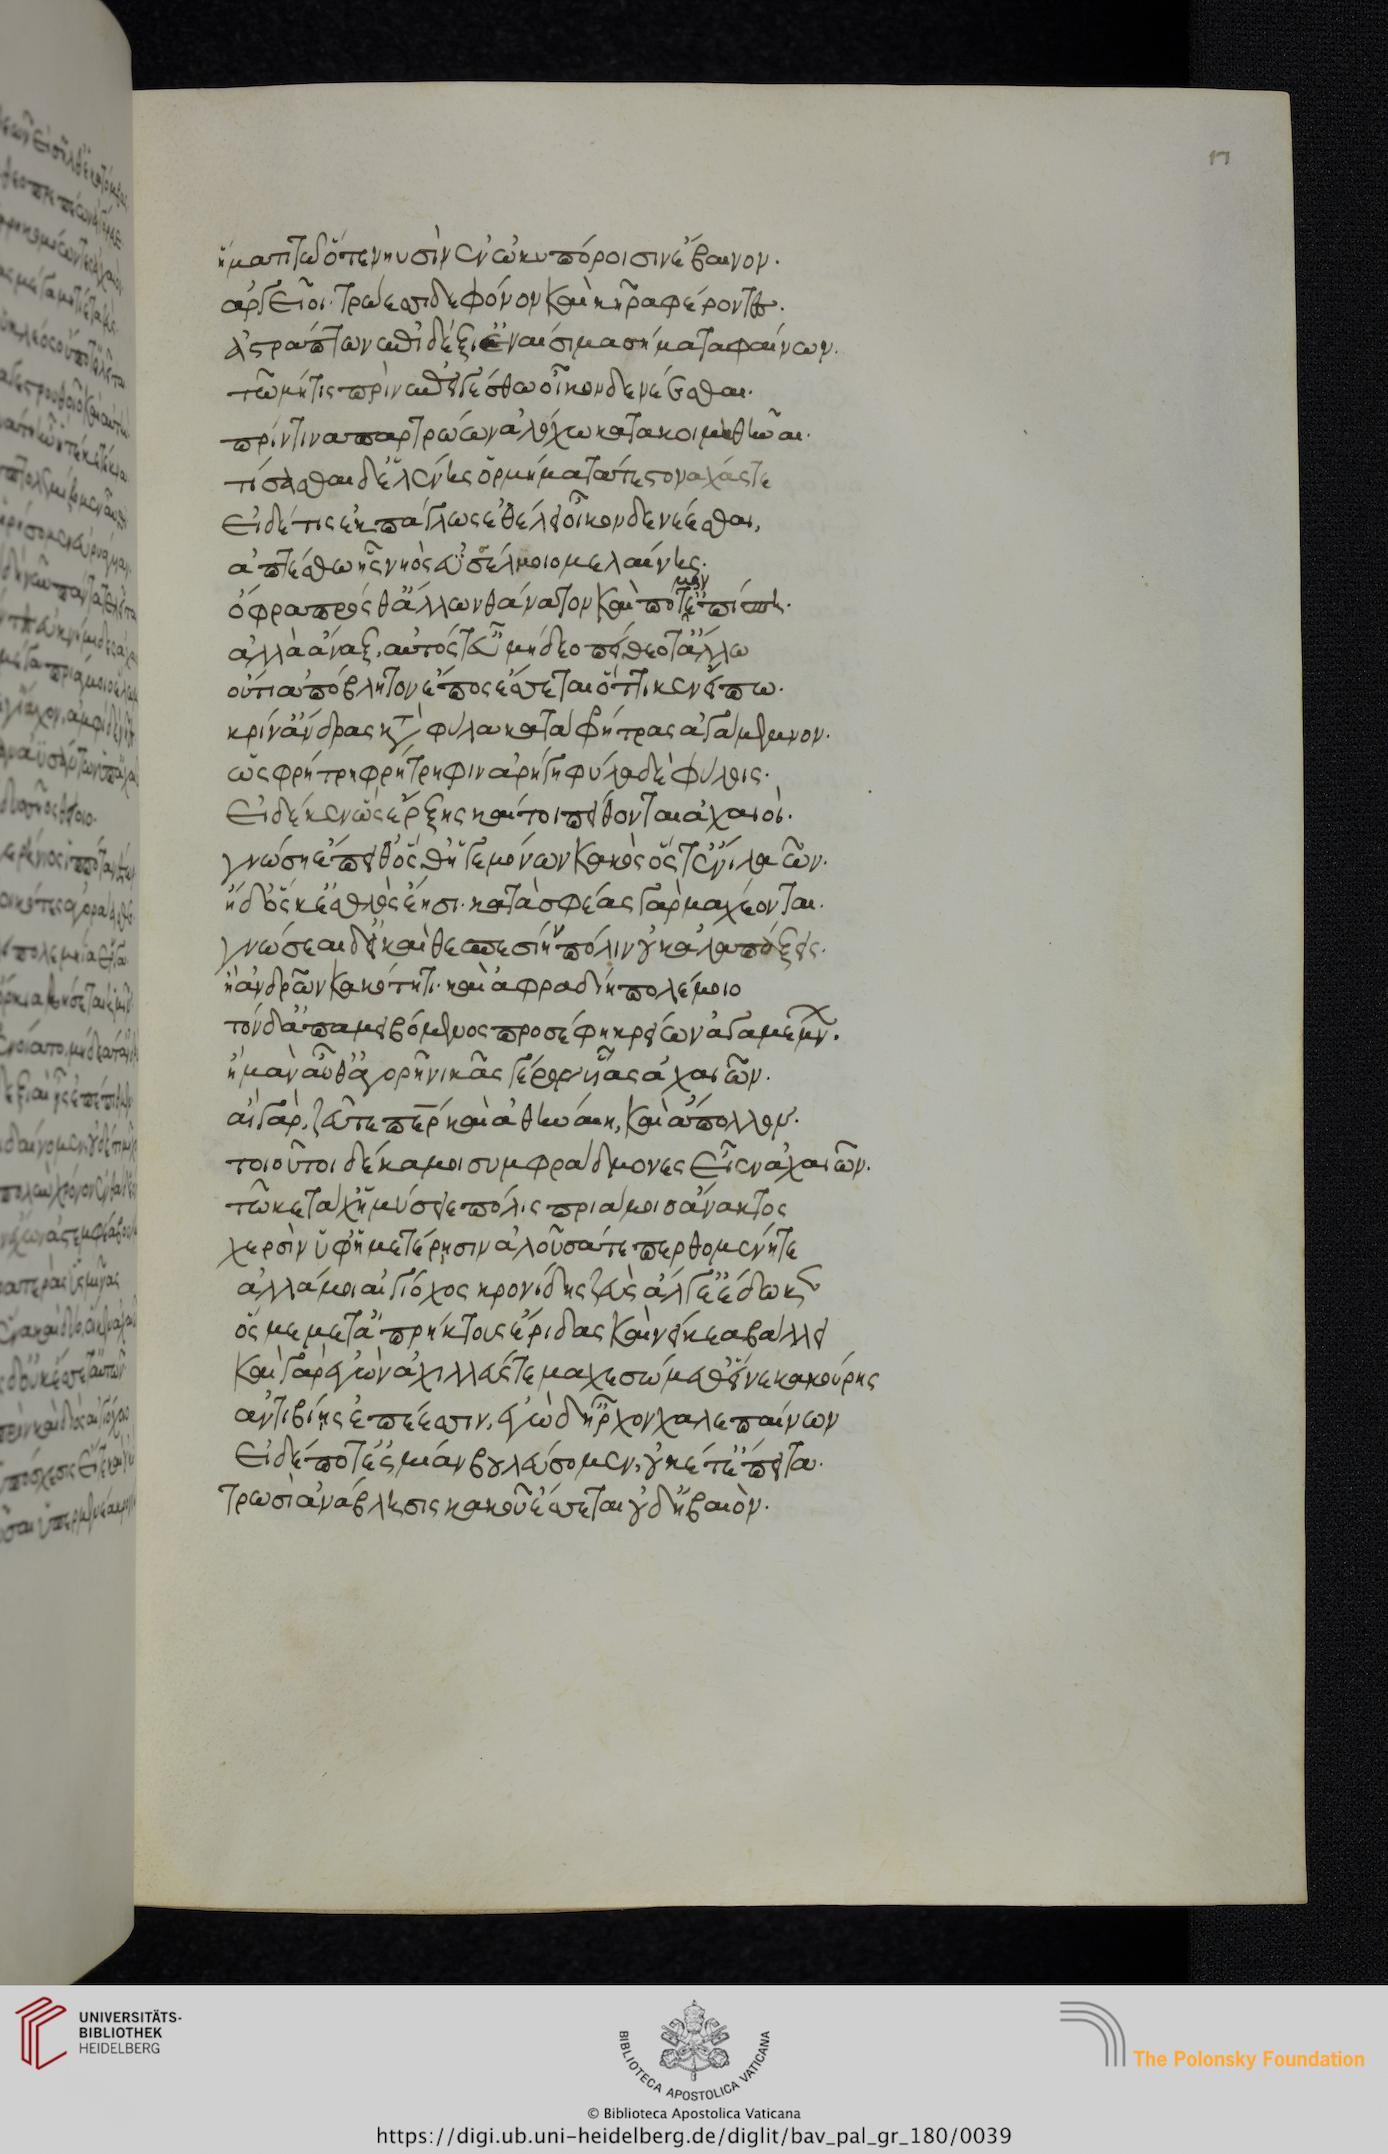 17
ἤματι τῷ ὅτε νηυσὶν ἐν ὠκυπόροισιν ἔβαινον.
ἀργεῖοι. τρώεσσι δὲ φόνον καὶ κῆρα φέροντες.
ἀστράπτων ἐπὶ δέξι ἐναίσιμα σήματα φαίνων.
τῶ μήτις πρὶν ἐπειγέσθω οἶκον δὲ νέεσθαι.
πρίν τινα παρ τρώων ἀλόχω κατακοιμηθῆναι.
τίσασθαι δ' ἑλένης ὁρμήματα τε στοναχάς τε
εἰ δέ τις ἐκπάγλως ἐθέλει οἶκον δὲ νέεσθαι,
ἁπτέσθω ἧς νηὸς ἐϋσέλμοιο μελαίνης.
ὄφρα πρόσθ' ἄλλων θάνατον καὶ πότμον ἐπίσπῃ.
ἀλλὰ ἄναξ, αὐτός τ' εὖ μήδεο πείθεό τ' ἄλλω
οὔτι ἀπόβλητον ἔπος ἔσσεται ὅττι κεν εἴπω.
κρῖν' ἄνδρας κατὰ φύλα κατὰ φρήτρας ἀγάμεμνον.
ὡς φρήτρη φρήτρηφιν ἀρήγῃ φύλα δὲ φύλοις.
εἰ δέ κεν ὣς ἕρξῃς καί τοι πείθονται ἀχαιοί.
γνώσῃ ἔπειθ' ὅς θ' ἡγεμόνων κακὸς ὅς τέ νυ λαῶν.
ἠδ' ὅς κ' ἐσθλὸς ἔῃσι. κατὰ σφέας γὰρ μαχέονται.
γνώσεαι δ' εἰ καὶ θεσπεσίην πόλιν οὐκ ἀλαπάξεις.
ἢ ἀνδρῶν κακότητι. καὶ ἀφραδίη πολέμοιο
τὸν δ' ἀπαμειβόμενος προσέφη κρείων ἀγαμέμνων.
ἦ μὰν αὖθ' ἀγορῇ νικᾷς γέρον υἷας ἀχαιῶν.
αἲ γὰρ, ζεῦ τε πέρ καὶ ἀθηναίη, καὶ ἄπολλον.
τοιοῦτοι δέκα μοι συμφράδμονες εἶεν ἀχαιῶν.
τῶ κε τάχ' ἠμύσειε πόλις πριάμοισ ἄνακτος
χερσὶν ὑφ' ἡμετέρῃσιν ἁλοῦσά τε περθομένη τε
ἀλλά μοι αἰγίοχος κρονίδης ζεὺς ἄλγε' ἔδωκεν
ὅς με μετ' ἀπρήκτους ἔριδας καὶ νείκεα βάλλει
καὶ γὰρ ἐγὼν ἀχιλλεύς τε μαχεσώμεθ' εἵνεκα κούρης
ἀντιβίης ἐπέεσσιν, ἐγὼ δ' ἦρχον χαλεπαίνων
εἰ δέ ποτ' ἔς μίαν βουλεύσομεν, οὐκέτ' ἔπειτα.
τρωσὶ ἀνάβλησις κακοῦ ἔσσεται οὐδ' ἠβαιόν.
UNIVERSITÄTS-
BIBLIOTHEK
HEIDELBERG
BIBLIOTECA APOSTOLICA VATICANA
The Polonsky Foundation
© Biblioteca Apostolica Vaticana
https://digi.ub.uni-heidelberg.de/diglit/bav_pal_gr_180/0039